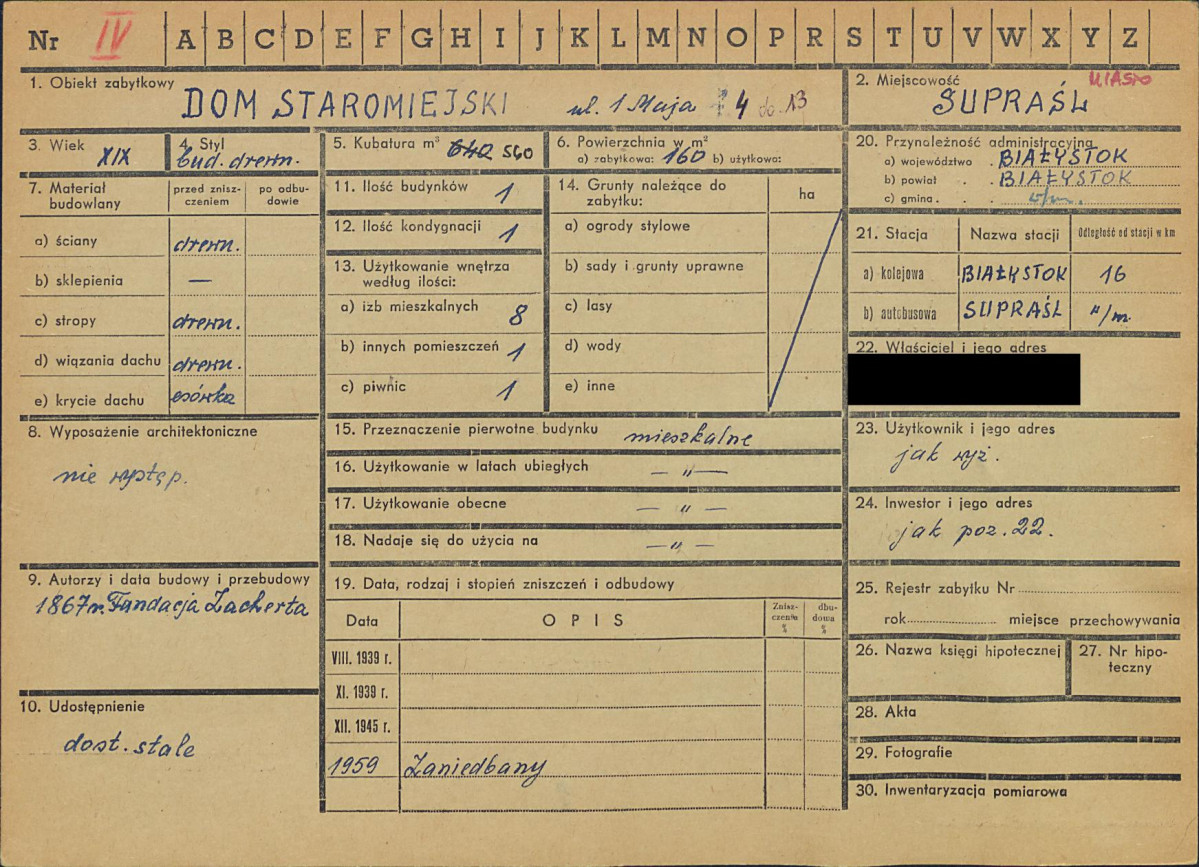 Nr IV A B C D E F G H I J K L M N O P R S T U V W X Y Z
1. Obiekt zabytkowy
DOM STAROMIEJSKI ul. 1 Maja 4 do 13
2. Miejscowość MIASTO
SUPRAŚL
3. Wiek XIX
4. Styl
bud. drewn.
5. Kubatura m³ 640 560
6. Powierzchnia w m²
a) zabytkowa: 160 b) użytkowa:
7. Materiał budowlany
przed zniszczeniem
po odbudowie
a) ściany drewn.
b) sklepienia —
c) stropy drewn.
d) wiązania dachu drewn.
e) krycie dachu esówka
8. Wyposażenie architektoniczne
nie występ.
9. Autorzy i data budowy i przebudowy
1867 r. Fundacja Zacherta
10. Udostępnienie
dost. stale
11. Ilość budynków 1
12. Ilość kondygnacji 1
13. Użytkowanie wnętrza
według ilości:
a) izb mieszkalnych 8
b) innych pomieszczeń 1
c) piwnic 1
14. Grunty należące do
zabytku:
ha
a) ogrody stylowe
b) sady i grunty uprawne
c) lasy
d) wody
e) inne
15. Przeznaczenie pierwotne budynku mieszkalne
16. Użytkowanie w latach ubiegłych — „ —
17. Użytkowanie obecne — „ —
18. Nadaje się do użycia na — „ —
19. Data, rodzaj i stopień zniszczeń i odbudowy
Data OPIS
Zniszczenia %
dbudowa %
VIII. 1939 r.
XI. 1939 r.
XII. 1945 r.
1959 Zaniedbany
20. Przynależność administracyjna
a) województwo . BIAŁYSTOK
b) powiat . . BIAŁYSTOK
c) gmina . . w/m.
21. Stacja Nazwa stacji Odległość od stacji w km
a) kolejowa BIAŁYSTOK 16
b) autobusowa SUPRAŚL "/m.
22. Właściciel i jego adres
23. Użytkownik i jego adres
jak wyż.
24. Inwestor i jego adres
jak poz. 22.
25. Rejestr zabytku Nr
rok miejsce przechowywania
26. Nazwa księgi hipotecznej
27. Nr hipoteczny
28. Akta
29. Fotografie
30. Inwentaryzacja pomiarowa